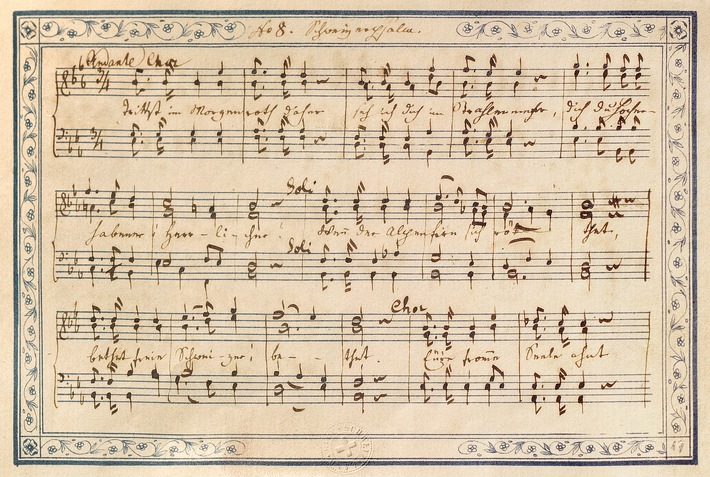 No 8. Schweizerpsalm.
Andante Chor
3/4
trittst im Morgenroth daher seh ich dich im Strahlenmeer, dich du Hocher-
3/4
Soli
habener! Herr-li-cher! Wenn der Alpenfirn sich röt thet,
Soli
Chor
bethet freie Schwei-zer! be- - thet. Eure fromme Seele ahnt